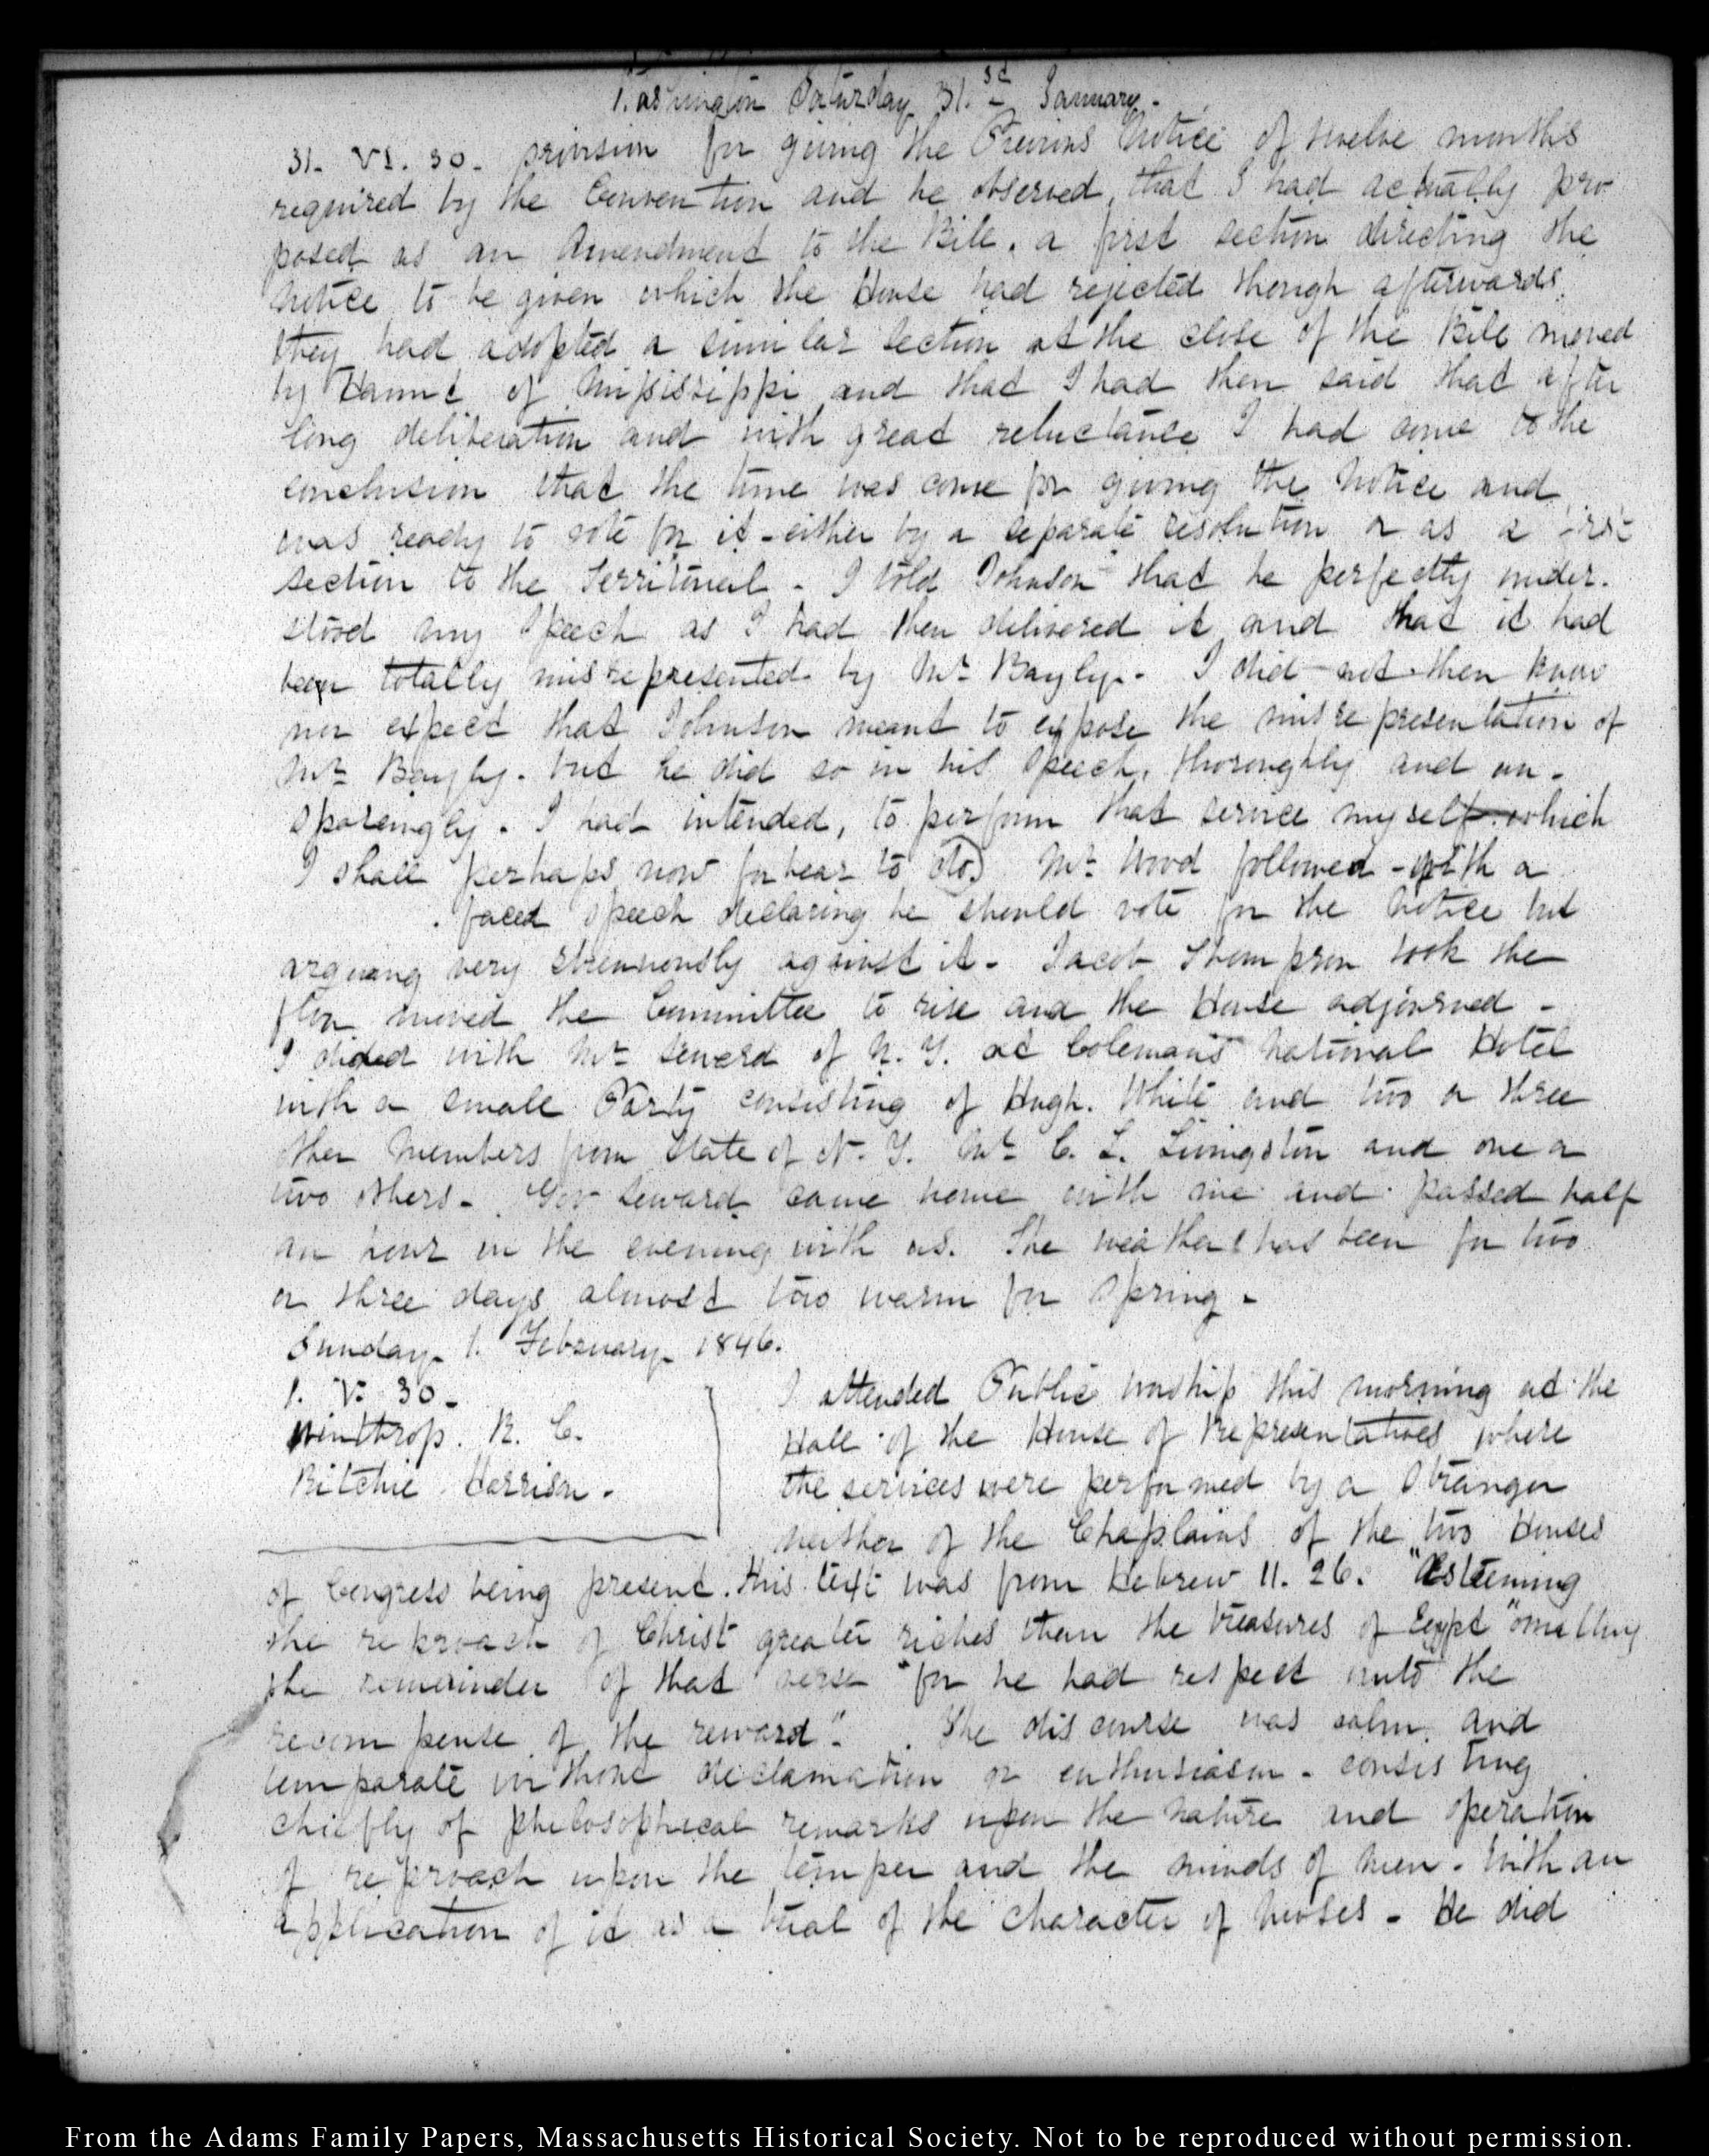 Washington Saturday 31.st January.
31. VI. 30. provision for giving the Previous Notice of twelve months
required by the Convention and he observed, that I had actually pro-
posed as an Amendment to the Bill. a first section directing the
Notice to be given which the House had rejected though afterwards
they had adopted a similar section at the close of the Bill moved
by of Missisippi and that I had then said that after
long deliberation and with great reluctance I had come to the
conclusion that the time was come for giving the Notice and
was ready to vote for it - either by a separate resolution or as a first
section to the Territorial - I told Johnson that he perfectly under-
stood my Speech as I had then delivered it and that it had
been totally misrepresented by Mr Bayly. I did not then know
nor expect that Johnson meant to expose the misrepresentation of
Mr Bayly. but he did so in his Speech, thoroughly and un-
sparingly. I had intended, to perform that service myself which
I shall perhaps now forbear to do) Mr Wood followed - with a
faced speech declaring he should vote for the Notice but
arguang very strenuously against it - Jacob Thompson took the
floor moved the Committee to rise and the House adjourned -
I dided with Mr Seward of N. Y. at Coleman's National Hotel
with a small Party consisting of Hugh. White and two or three
other Members from State of N. Y. Mr C. L. Livingston and one or
two others - Gov Seward came home with me and passed half
an hour in the evening with us. The weather has been for two
or three days almost too warm for Spring -
Sunday. 1. February. 1846.
1. V. 30 -
Winthrop. R. C.
Ritchie Harrison.
I attended Public worship this morning at the
Hall of the House of Representatives where
the services were performed by a Stranger
neither of the Chaplains of the two Houses
of Congress being present. His text was from Hebrew 11. 26. "Esteeming
the reproach of Christ greater riches than the treasures of Egypt" omitting
the remainder of that verse "for he had respect unto the
recompense of the reward". The discourse was calm and
temparate without declamation or enthusiasm - consisting
chiefly of philosophical remarks upon the nature and operation
of reproach upon the temper and the minds of men. With an
application of it as a trial of the character of Moses - He did
From the Adams Family Papers, Massachusetts Historical Society. Not to be reproduced without permission.